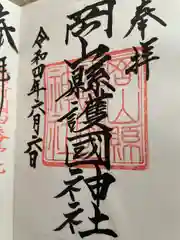 奉拝
岡山縣護國神社
令和四年六月六日